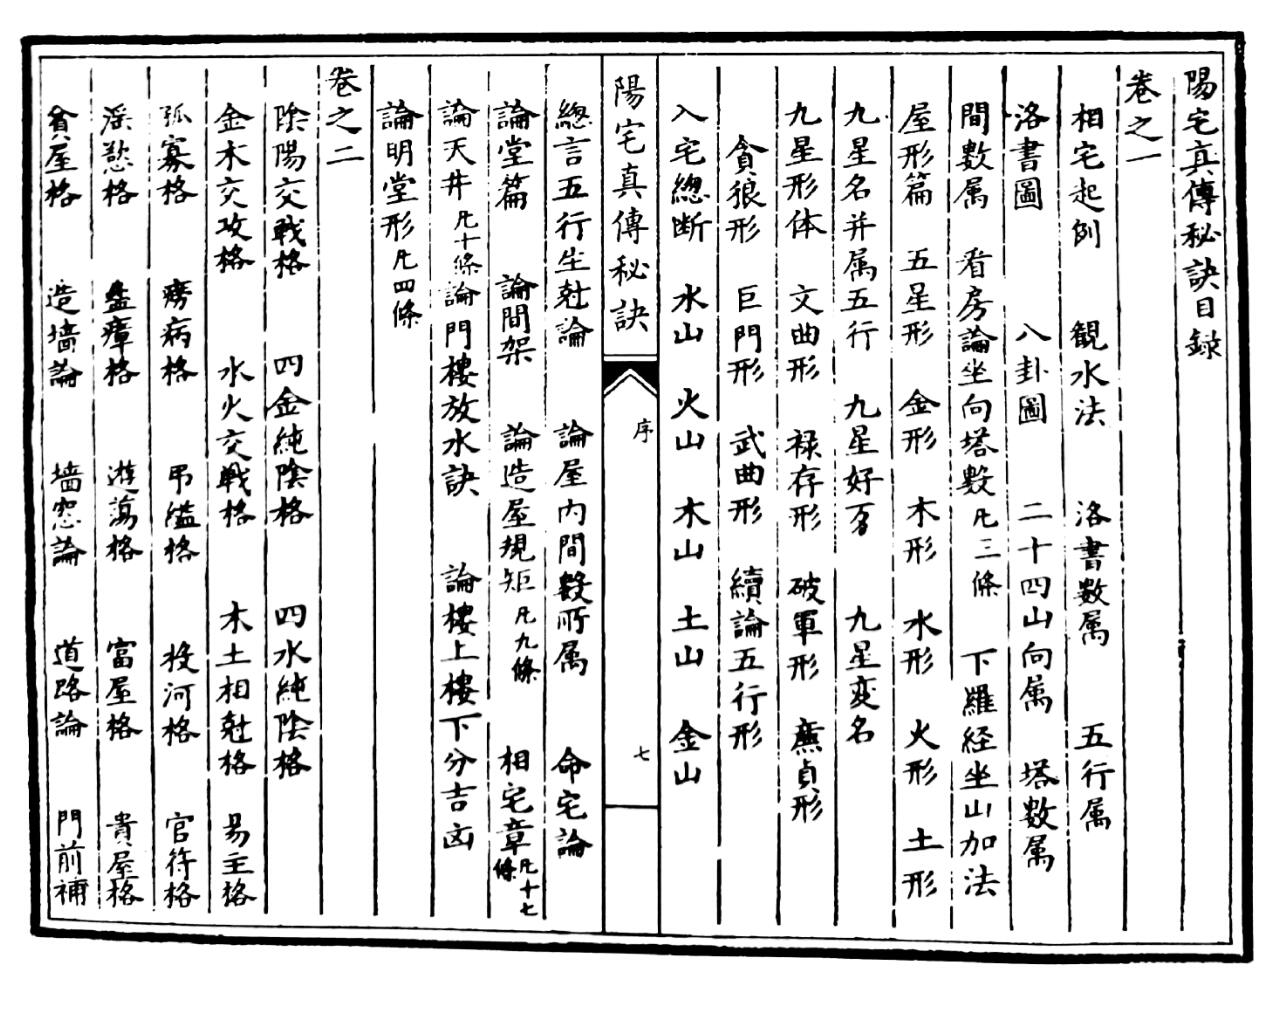 陽宅真傳秘訣目録
卷之一
相宅起例 観水法 洛書數属 五行属
洛書圖 八卦圖 二十四山向属 塔數属
間數属 看房論坐向塔數凡三條 下羅経坐山加法
屋形篇 五星形 金形 木形 水形 火形 土形
九星名并属五行 九星好歹 九星変名
九星形体 文曲形 禄存形 破軍形 廉貞形
貪狼形 巨門形 武曲形 續論五行形
入宅緫断 水山 火山 木山 土山 金山
陽宅真傳秘訣
序
七
緫言五行生尅論 論屋内間數所属 命宅論
論堂篇 論間架 論造屋規矩凡九條 相宅章凡十七條
論天井凡十條 論門樓放水訣 論樓上樓下分吉凶
論明堂形凡四條
卷之二
陰陽交戦格 四金純陰格 四水純陰格
金木交攻格 水火交戦格 木土相尅格 易主格
孤寡格 癆病格 吊縊格 投河格 官符格
淫慾格 蠱瘴格 遊蕩格 富屋格 貴屋格
貧屋格 造墻論 墻窓論 道路論 門前補